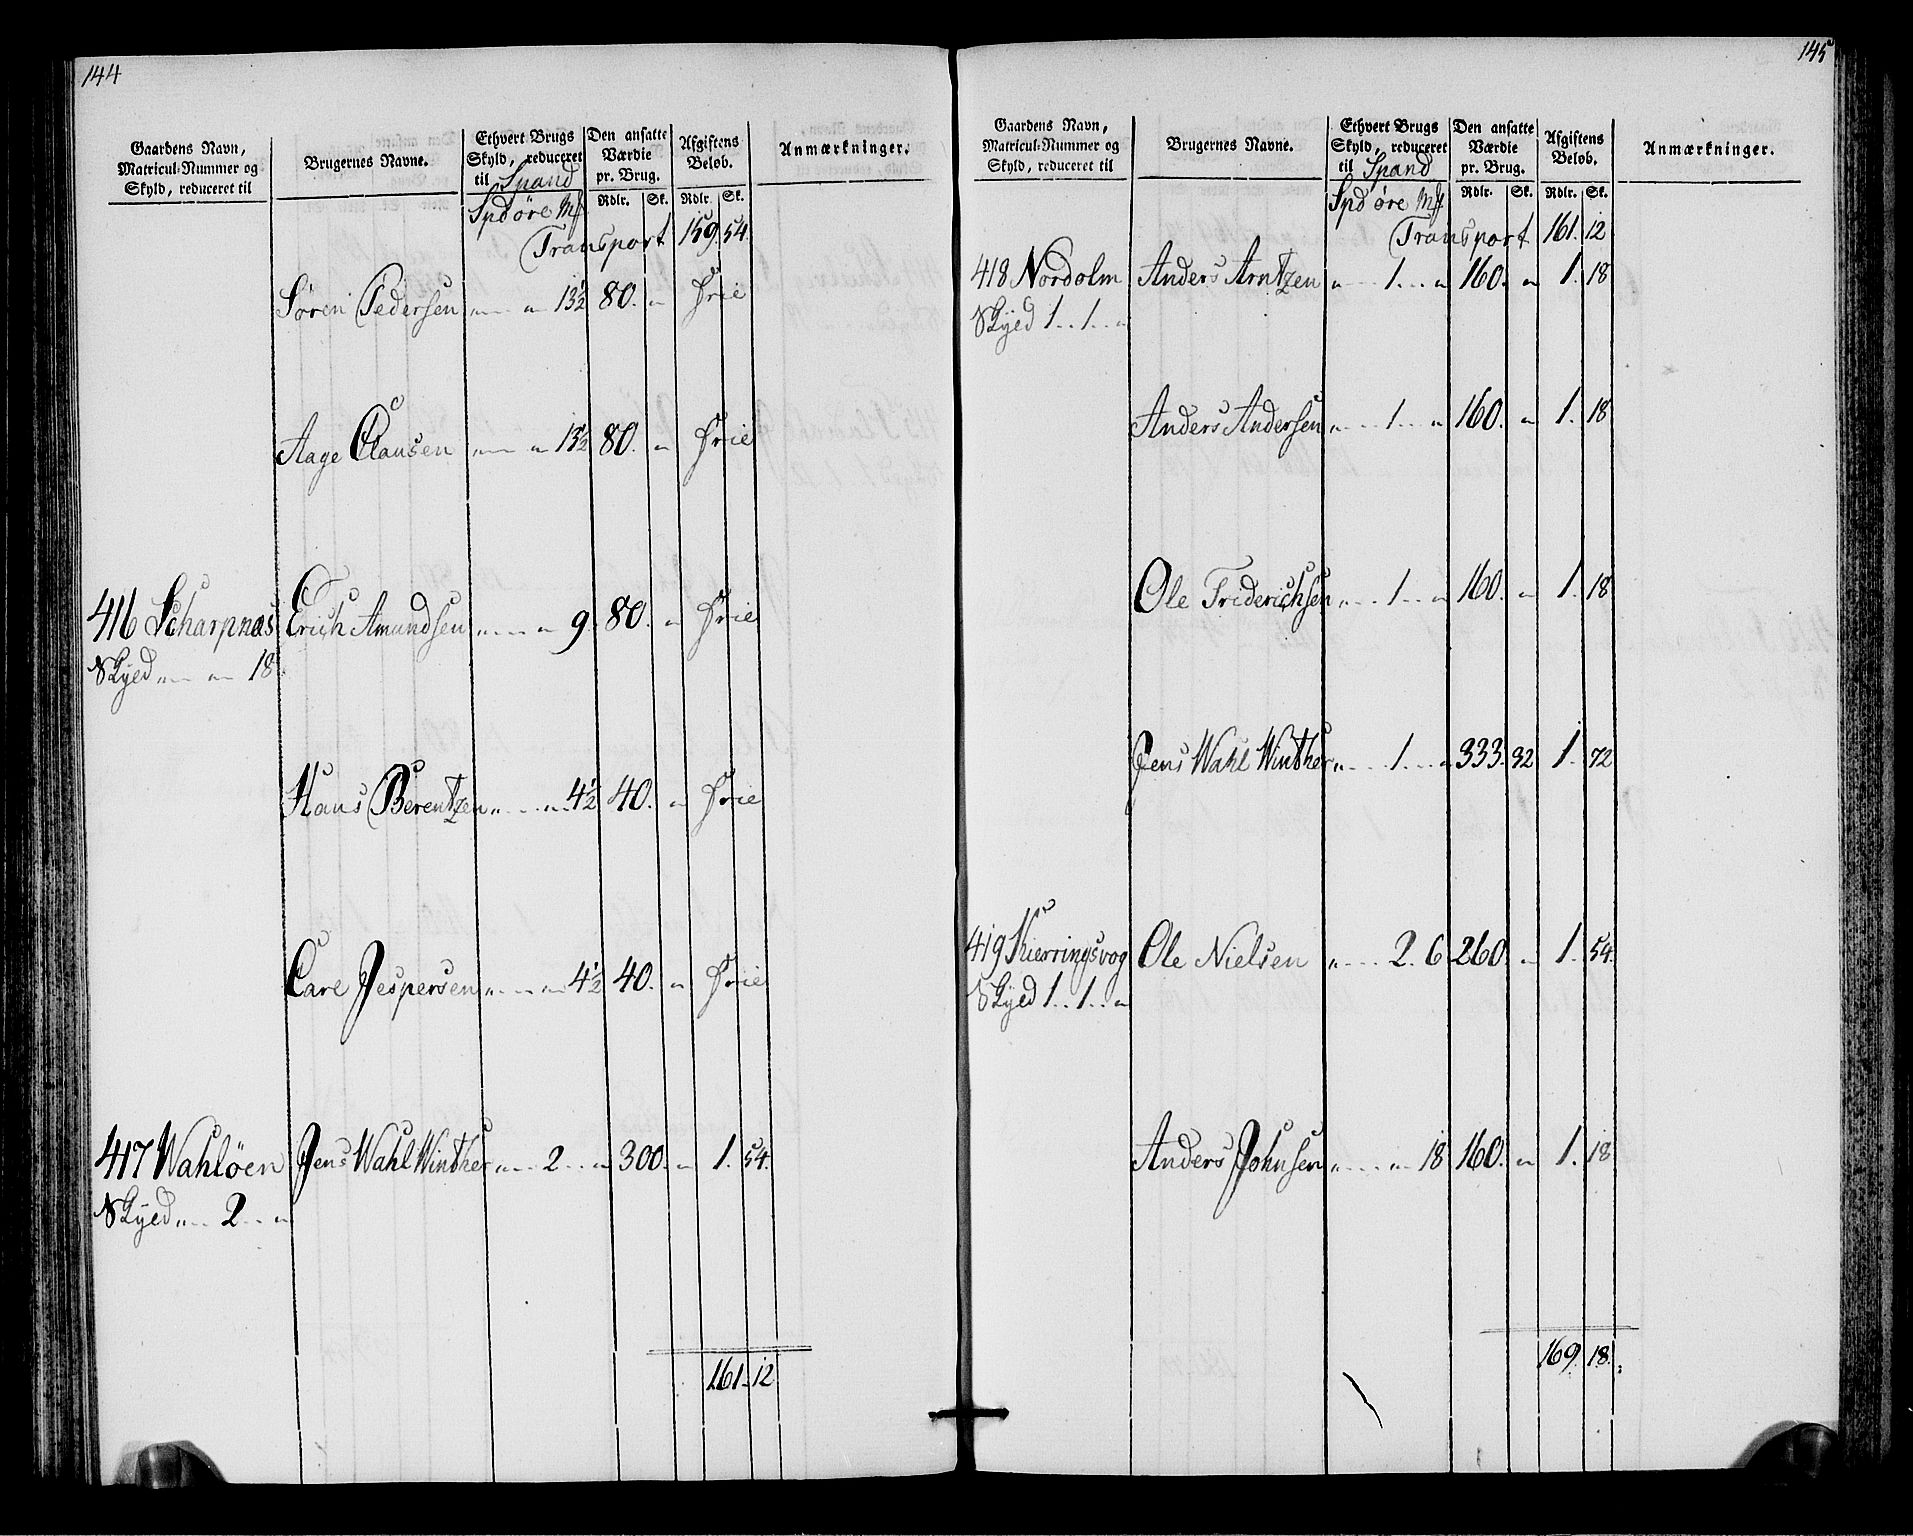 144
Gaardens Navn, Matricul-Nummer og Skyld, reduceret til
Brugernes Navne.
Ethvert Brugs Skyld, reduceret til Spand
Den ansatte Værdie pr. Brug.
Afgiftens Beløb.
Anmærkninger.
Spd øre Mk Rdlr. Sk. Rdlr. Sk.
Transport 159. 54.
Søren Pedersen „ „ 13½ 80. „ Frie
Aage Clausen „ „ 13½ 80. „ Frie
416 Scharpnæs Erich Amundsen „ „ 9. 80. „ Frie
Skyld „ „ 18
Hans Berentzen „ „ 4½ 40. „ Frie
Carl Jespersen „ „ 4½ 40. „ Frie
417 Wahløen Jens Wahl Winther „ 2 „ 300. „ 1. 54.
Skyld „ 2 „
161. 12
145
Gaardens Navn, Matricul-Nummer og Skyld, reduceret til
Brugernes Navne.
Ethvert Brugs Skyld, reduceret til Spand
Den ansatte Værdie pr. Brug.
Afgiftens Beløb.
Anmærkninger.
Spd øre Mk Rdlr. Sk. Rdlr. Sk.
Transport 161. 12
418 Nordolm Anders Arntzen „ 1. „ 160. „ 1. 18
Skyld 1 1 „
Anders Andersen „ 1 „ 160. „ 1. 18
Ole Friderichsen „ 1 „ 160. „ 1. 18
Jens Wahl Winther „ 1. „ 333. 32 1. 72
419 Kierringsvog Ole Nielsen „ 2. 6 260. „ 1. 54.
Skyld 1 1 „
Anders Johnsen „ „ 18 160. „ 1. 18
169. 18.